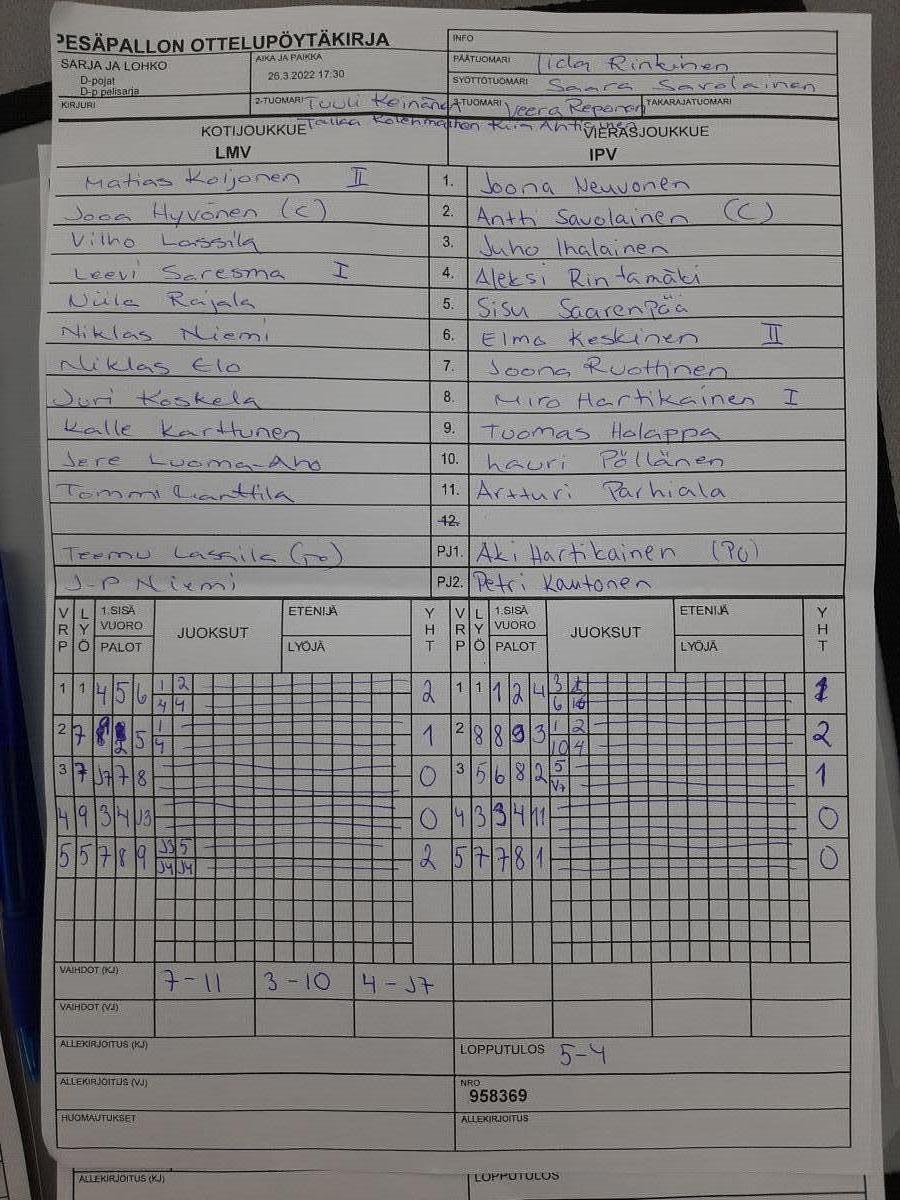 PESÄPALLON OTTELUPÖYTÄKIRJA
INFO
SARJA JA LOHKO
D-pojat
D-p pelisarja
AIKA JA PAIKKA
26.3.2022 17:30
PÄÄTUOMARI Iida Rinkinen
SYÖTTÖTUOMARI Saara Savolainen
KIRJURI
2-TUOMARI Tuuli Keinänen
3-TUOMARI Veera Reponen
TAKARAJATUOMARI
KOTIJOUKKUE
VIERASJOUKKUE
LMV
IPV
Matias Koljonen II 1. Joona Neuvonen
Jooa Hyvönen (c) 2. Antti Savolainen (C)
Vilho Lassila 3. Juho Ihalainen
Leevi Saresma I 4. Aleksi Rintamäki
Niila Rajala 5. Sisu Saarenpää
Niklas Niemi 6. Elmo Keskinen II
Niklas Elo 7. Joona Ruottinen
Juri Koskela 8. Miro Hartikainen I
Kalle Karttunen 9. Tuomas Holappa
Jere Luoma-Aho 10. Lauri Pöllänen
Tommi Lanttila 11. Artturi Parhiala
12.
Teemu Lassila (po) PJ1. Aki Hartikainen (PO)
J-P Niemi PJ2. Petri Kautonen
VRP LYÖ 1.SISÄ VUORO PALOT JUOKSUT ETENIJÄ LYÖJÄ YHT VRP LYÖ 1.SISÄ VUORO PALOT JUOKSUT ETENIJÄ LYÖJÄ YHT
1 1 4 5 6 1 2 2 1 1 1 2 4 3 1
4 4 6
2 7 5 1 1 2 8 8 9 3 1 2 2
4 10 4
3 7 J7 7 8 0 3 5 6 8 2 5 1
V7
4 9 3 4 J3 0 4 3 3 4 11 0
5 5 7 8 9 J3 5 2 5 7 7 8 1 0
J4 J4
VAIHDOT (KJ) 7-11 3-10 4-J7
VAIHDOT (VJ)
ALLEKIRJOITUS (KJ)
LOPPUTULOS 5-4
ALLEKIRJOITUS (VJ)
NRO
958369
HUOMAUTUKSET
ALLEKIRJOITUS
ALLEKIRJOITUS (KJ)
LOPPUTULOS